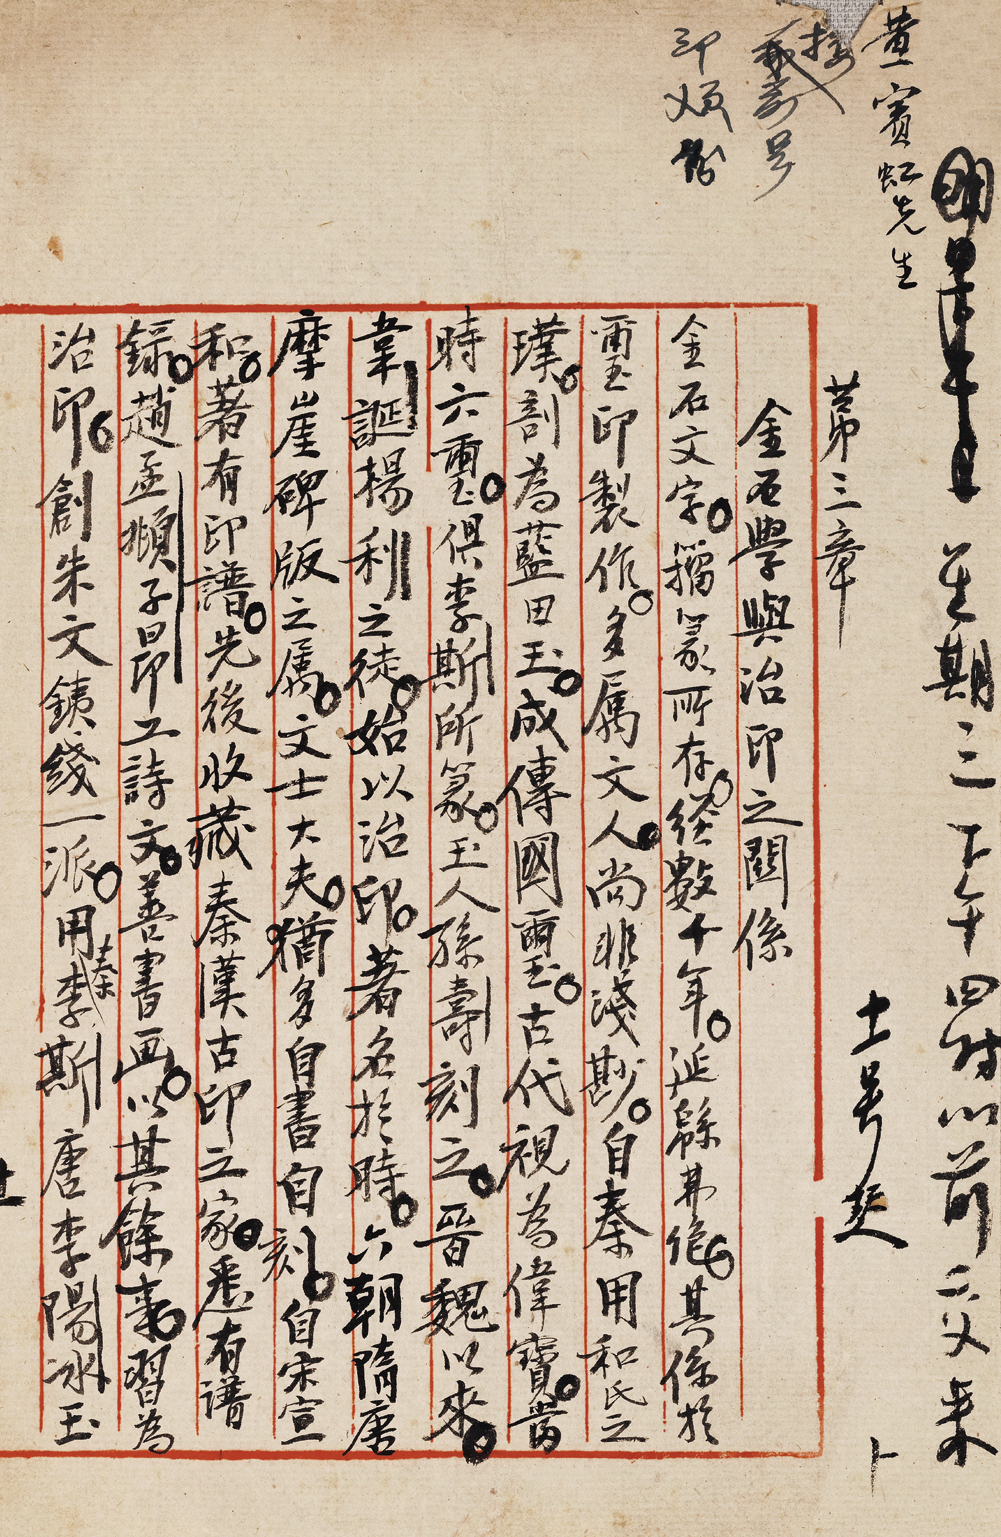 星期三下午四时以前二父来
黄賓虹先生
十一号
第三章
金石學與治印之關係
金石文字。籀篆所存。經數千年。延緜弗絶。其係於
璽印製作。多属文人。尚非淺尠。自秦用和氏之
璞。剖為藍田玉。成傳國璽。古代視為偉寶。當
時六璽。俱李斯所篆。玉人孫壽刻之。晉魏以來。
韋誕楊利之徒。始以治印。著名於時。六朝隋唐
摩崖碑版之属。文士大夫。猶多自書自刻。自宋宣
和。著有印譜。先後收藏秦漢古印之家。悉有譜
錄。趙孟頫子昂工詩文。善書画。以其餘事。習為
治印。創朱文銕綫一派。用秦李斯唐李陽冰玉